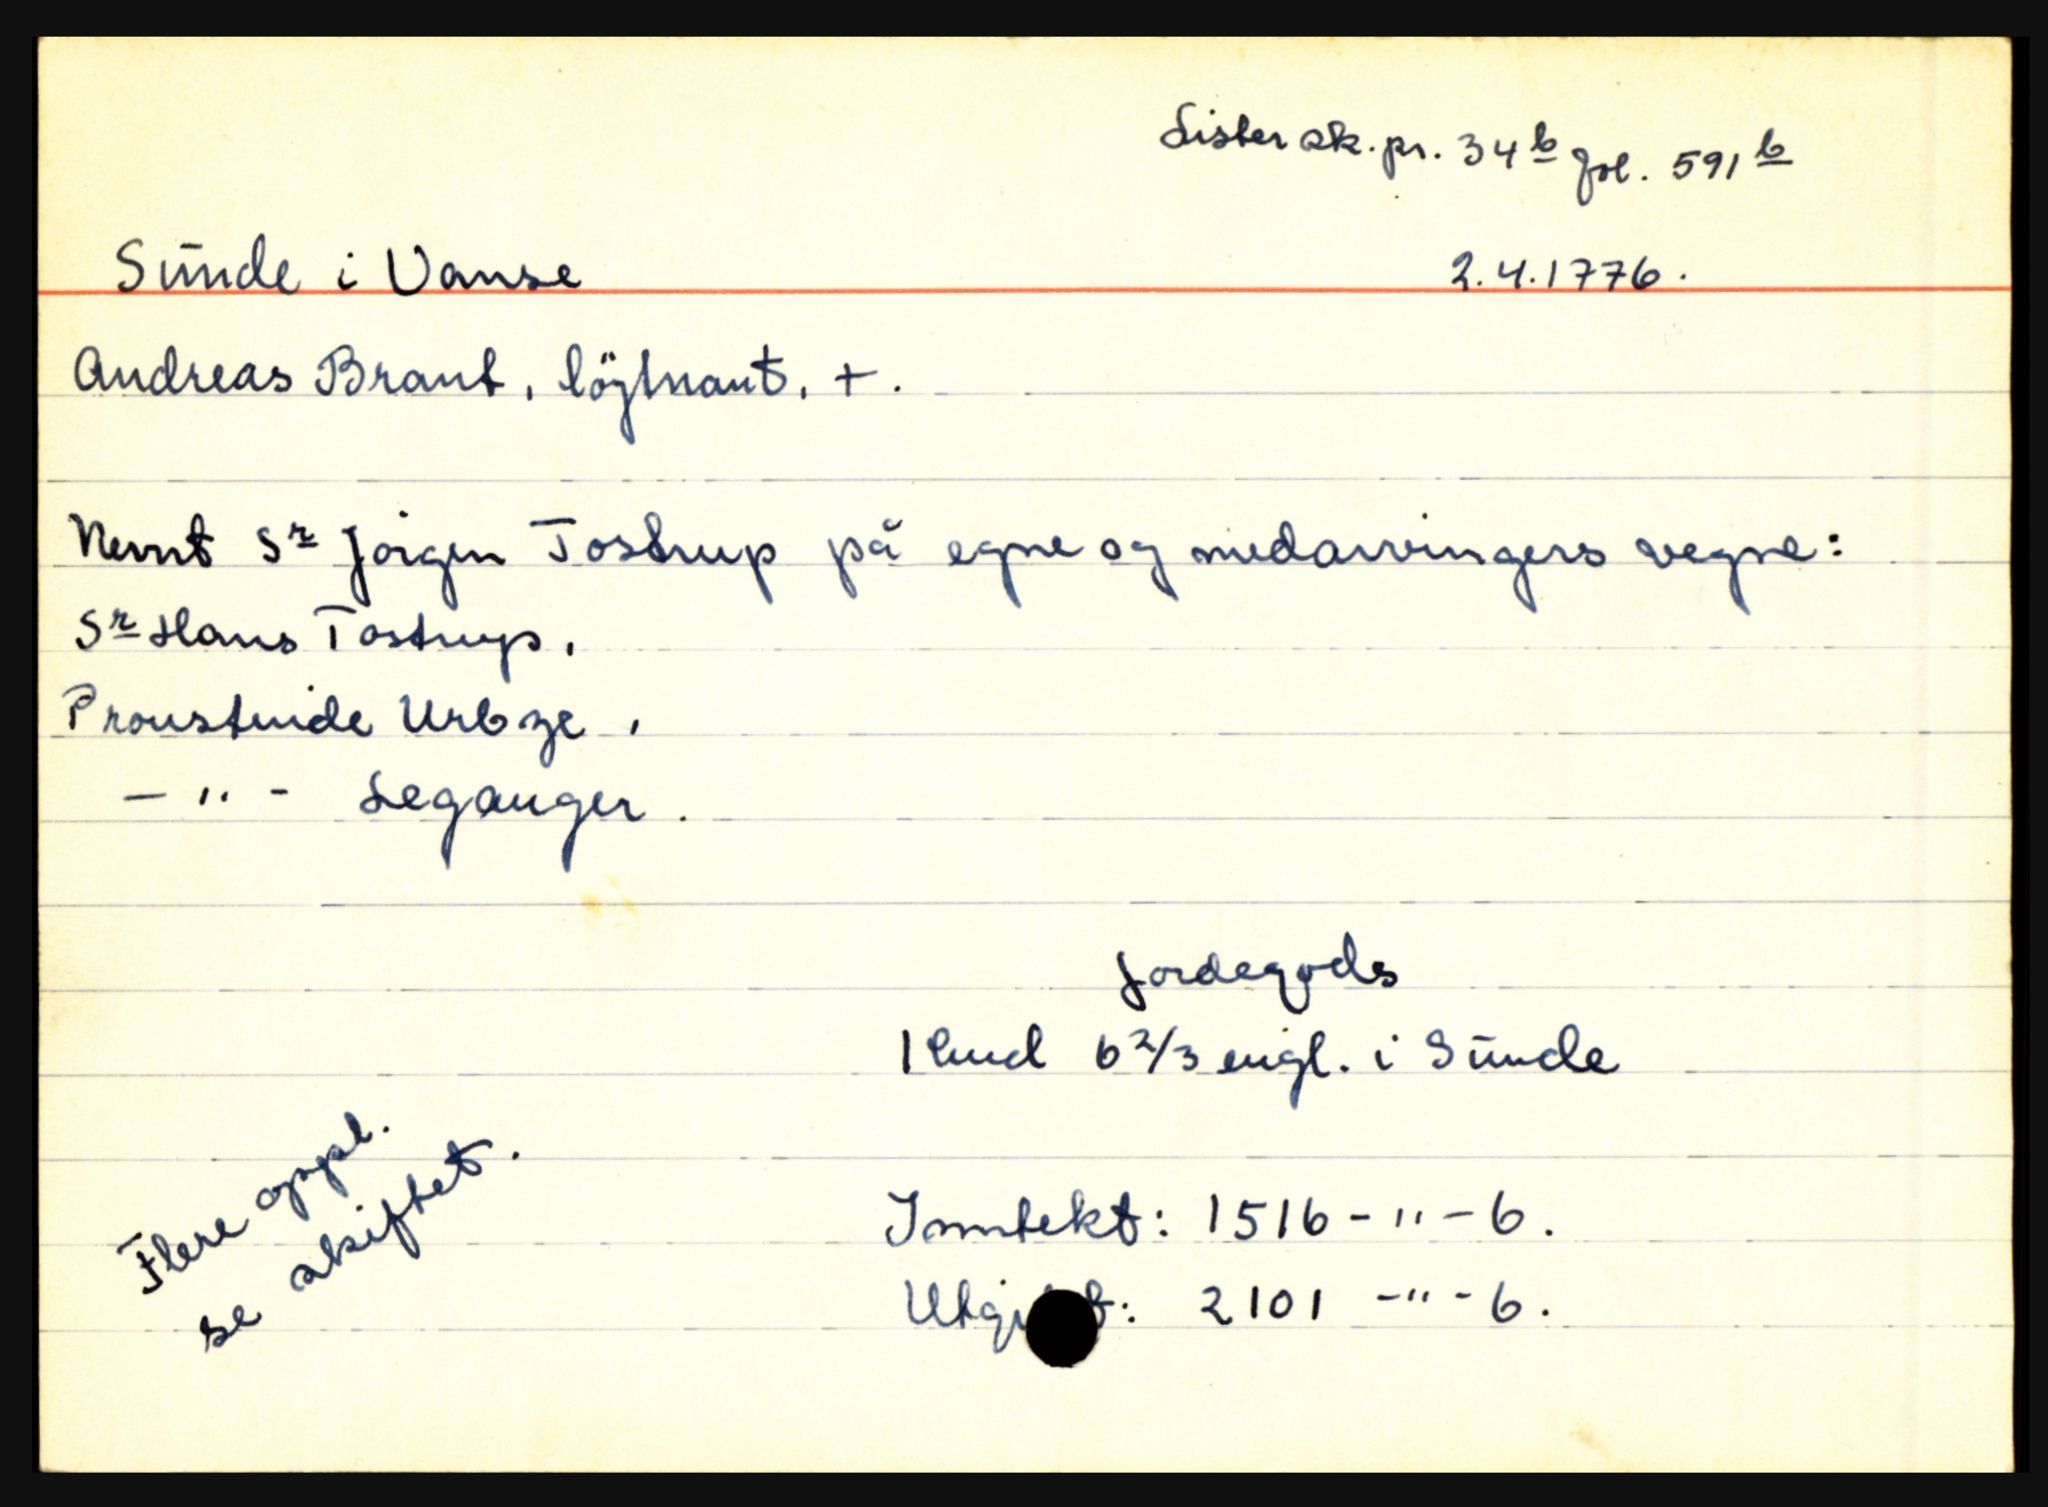 Lister sk. pr. 34b fol. 591b
Sunde i Vanse 2.4.1776.
Andreas Brant, löjtnant, +.
Nevnt Sr Jørgen Tostrup på egne og medarvingers vegne:
Sr Hans Tostrup,
Proustinde Urbye,
- " - Leganger.
Jordegods
1 hud 6 2/3 engl. i Sunde
Flere oppl.
se skiftet.
Inntekt: 1516 - " - 6.
2101 - " - 6.